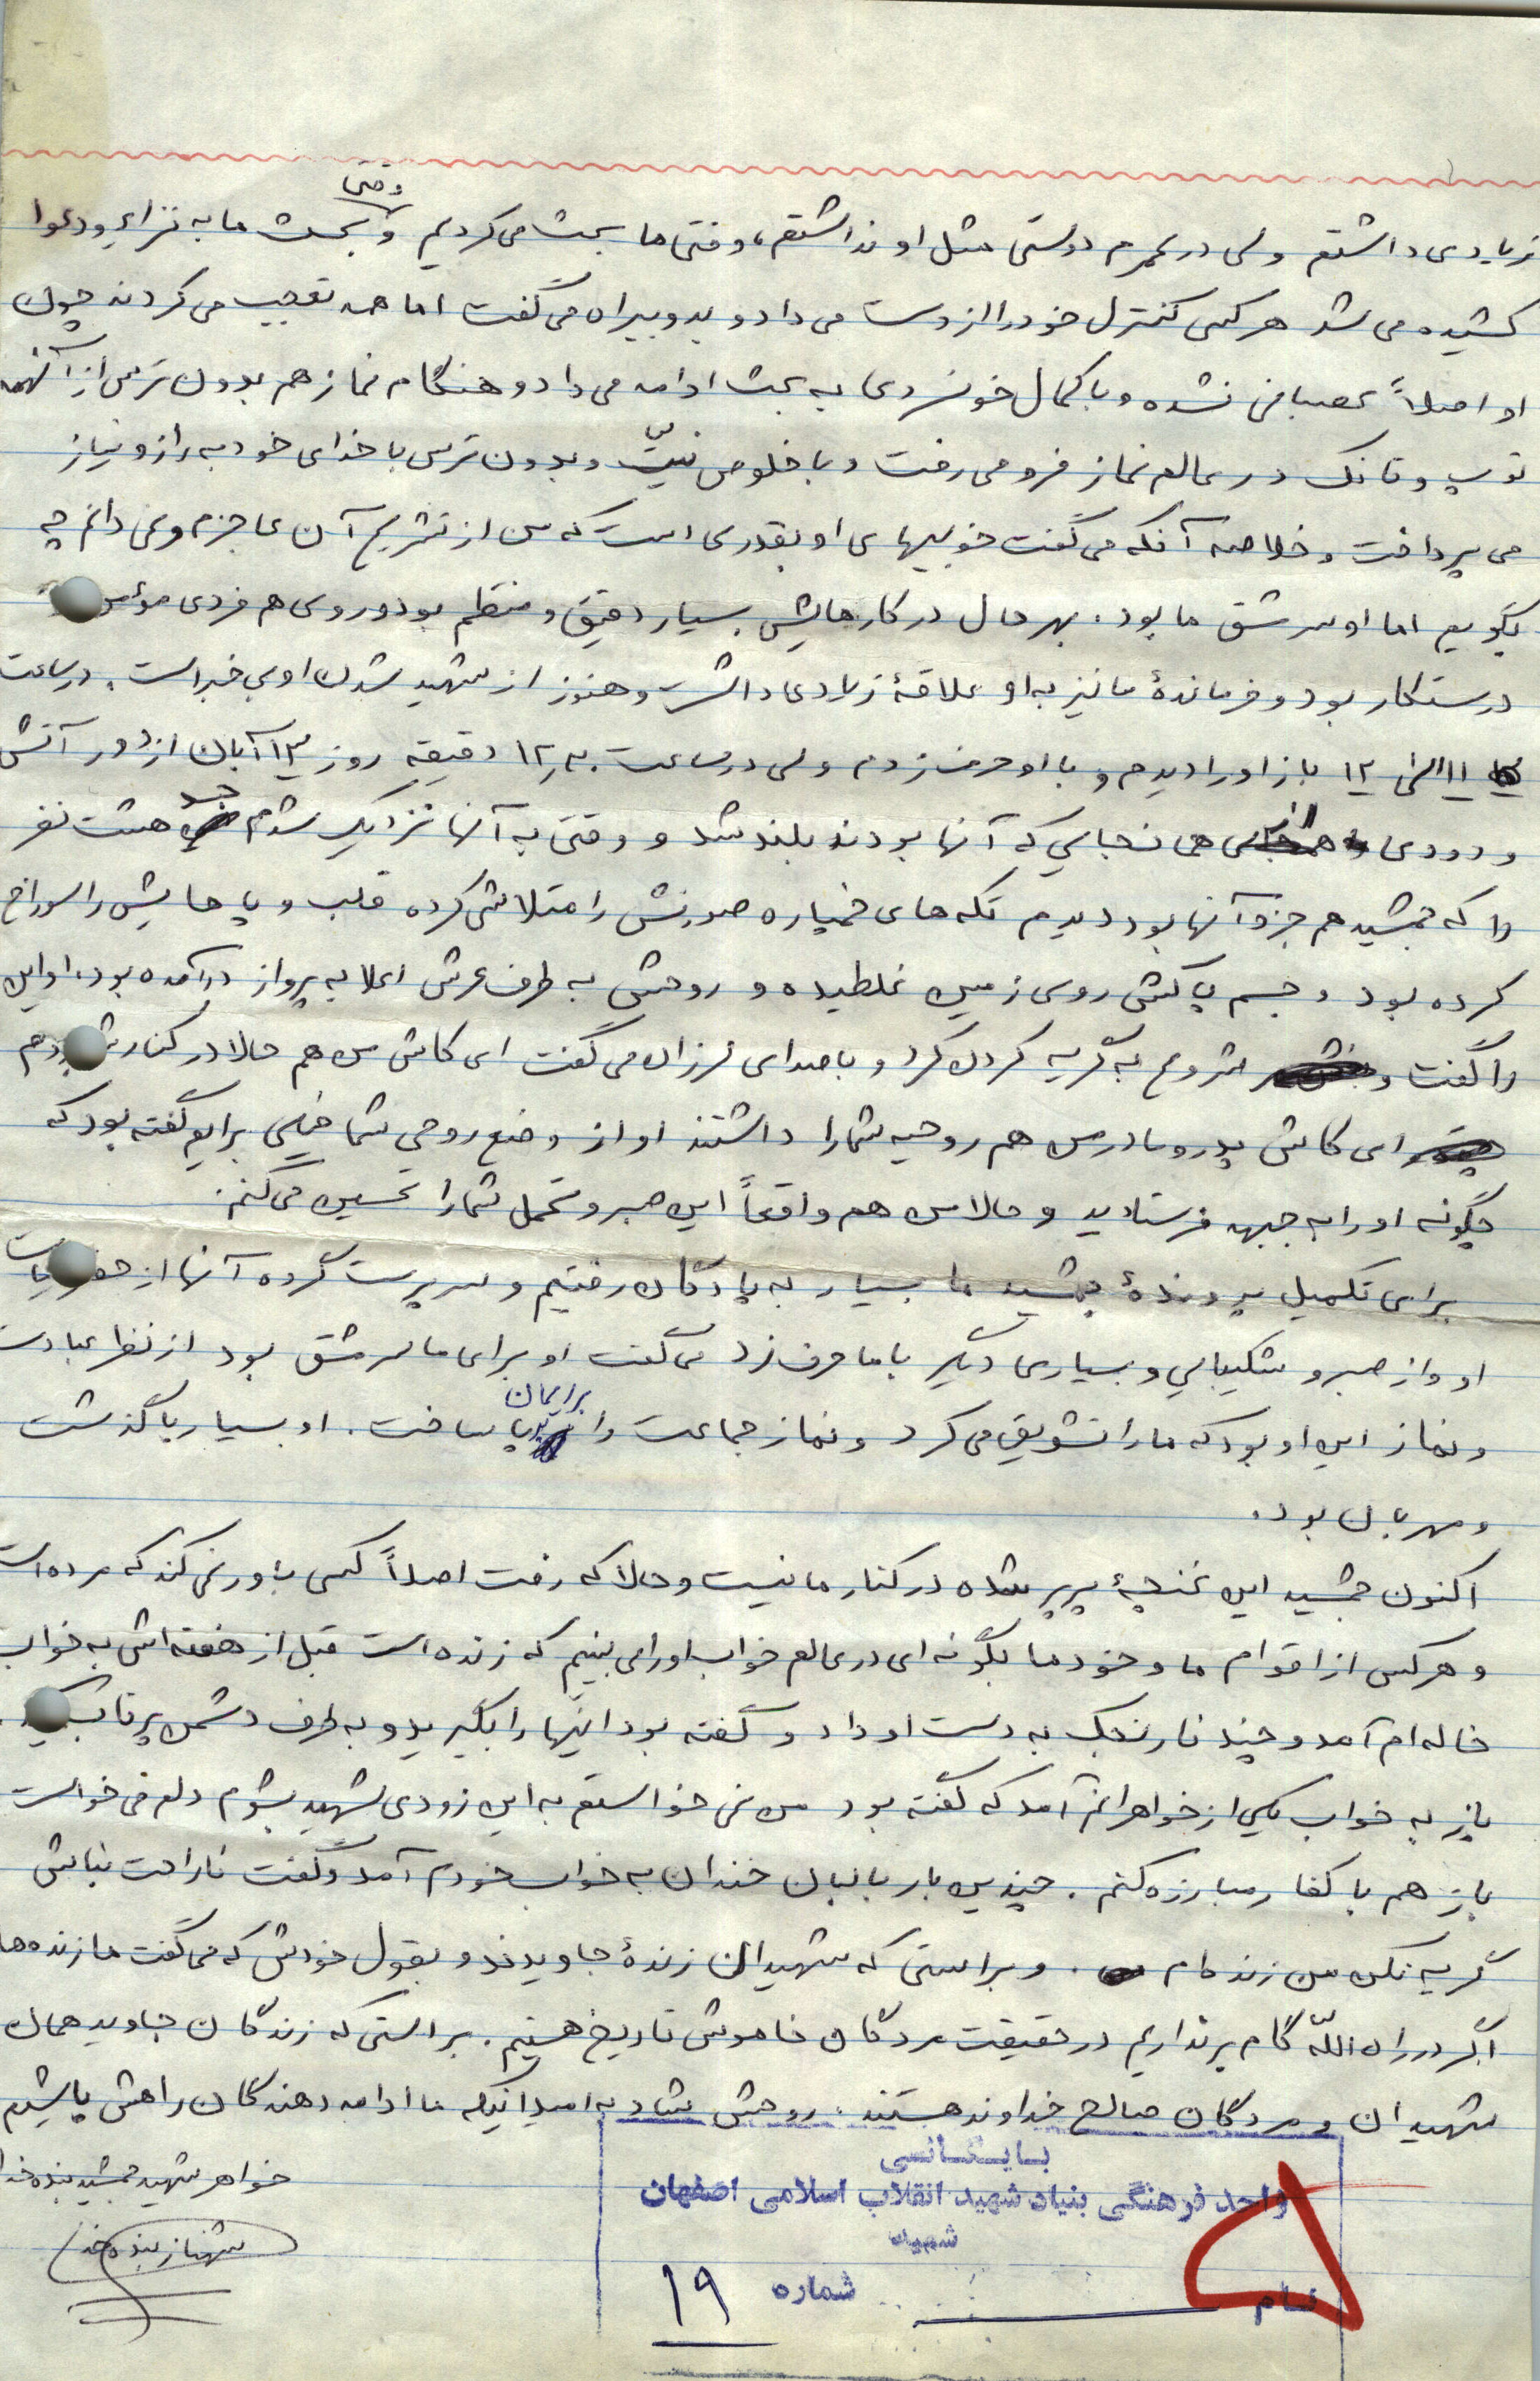 وقتی
زیادی داشتم ولی در عمرم دوستی مثل او نداشتم، وقتی ما بحث می‌کردیم و بحث ما به نزاع و دعوا
کشیده می‌شد هر کسی کنترل خود را از دست می‌داد و بد و بیراه می‌گفت اما همه تعجب می‌کردند چون
او اصلاً عصبانی نشده و با کمال خونسردی به بحث ادامه می‌داد و هنگام نماز هم بدون ترس از آنهمه
توپ و تانک در عالم نماز فرو می‌رفت و با خلوص نیّت و بدون ترس با خدای خود به راز و نیاز
می‌پرداخت و خلاصه آنکه می‌گفت خوبیهای او بقدری است که من از تشریح آن عاجزم و نمی‌دانم چه
بگویم اما او سرمشق ما بود. بهر حال در کارهایش بسیار دقیق و منظم بود و روی هم فردی مؤمن
درستکار بود و فرماندهٔ ما نیز به او علاقهٔ زیادی داشت و هنوز از شهید شدن او بی خبر است. در ساعت
۱۱ الی ۱۲ باز او را دیدم و با او حرف زدم ولی در ساعت ۱۲ دقیقه روز ۱۳ آبان از دور آتش
و دودی از همانجایی که آنها بودند بلند شد و وقتی به آنها نزدیک شدم جسد هشت نفر
را که جمشید هم جزو آنها بود دیدم تکه‌های خمپاره صورتش را متلاشی کرده قلب و پاهایش را سوراخ
کرده بود و جسم پاکش روی زمین غلطیده و روحش به طرف عرش اعلا به پرواز درآمده بود، او این
را گفت و شروع به گریه کردن کرد و با صدای لرزان می‌گفت ای کاش من هم حالا در کنارش بودم
ای کاش پدر و مادر من هم روحیه شما را داشتند او از وضع روحی شما خیلی برایم گفته بود که
چگونه او را به جبهه فرستادید و حالا من هم واقعاً این صبر و تحمل شما را تحسین می‌کنم.
برای تکمیل پروندهٔ جمشید ما بسیار به پادگان رفتیم و سرپرست گروه آنها از خصوصیات
او و از صبر و شکیبایی و بسیاری دیگر با ما حرف زد می‌گفت او برای ما سرمشق بود از نظر عبادت
و نماز این او بود که ما را تشویق می‌کرد و نماز جماعت را برایمان بپا ساخت. او بسیار با گذشت
و مهربان بود.
اکنون جمشید این غنچهٔ پرپر شده در کنار ما نیست و حالا که رفت اصلاً کسی باور نمی‌کند که مرده است
و هر کس از اقوام ما و خود ما بگونه‌ای در عالم خواب او را می‌بینیم که زنده است قبل از هفته‌اش به خواب
خاله‌ام آمد و چند نارنجک به دست او داد و گفته بود اینها را بگیرید و به طرف دشمن پرتاب کنید.
باز به خواب یکی از خواهرانم آمد که گفته بود من نمی‌خواستم به این زودی شهید بشوم دلم می‌خواست
باز هم با کفار مبارزه کنم. چندین بار با لبان خندان به خواب خودم آمد و گفت ناراحت نباش
گریه نکن من زنده‌ام. و براستی که شهیدان زندهٔ جاویدند و بقول خودش که می‌گفت ما زنده‌ها
اگر در راه اللّه گام برنداریم در حقیقت مردگان خاموش تاریخ هستیم. براستی که زندگان جاوید همان
شهیدان و مردگان صالح خداوند هستند. روحش شاد به امید اینکه ما ادامه دهندگان راهش باشیم
خواهر شهید جمشید بنده خدا
شهناز بنده خدا
بایگانی
واحد فرهنگی بنیاد شهید انقلاب اسلامی اصفهان
شهید
نام
شماره ۱۹